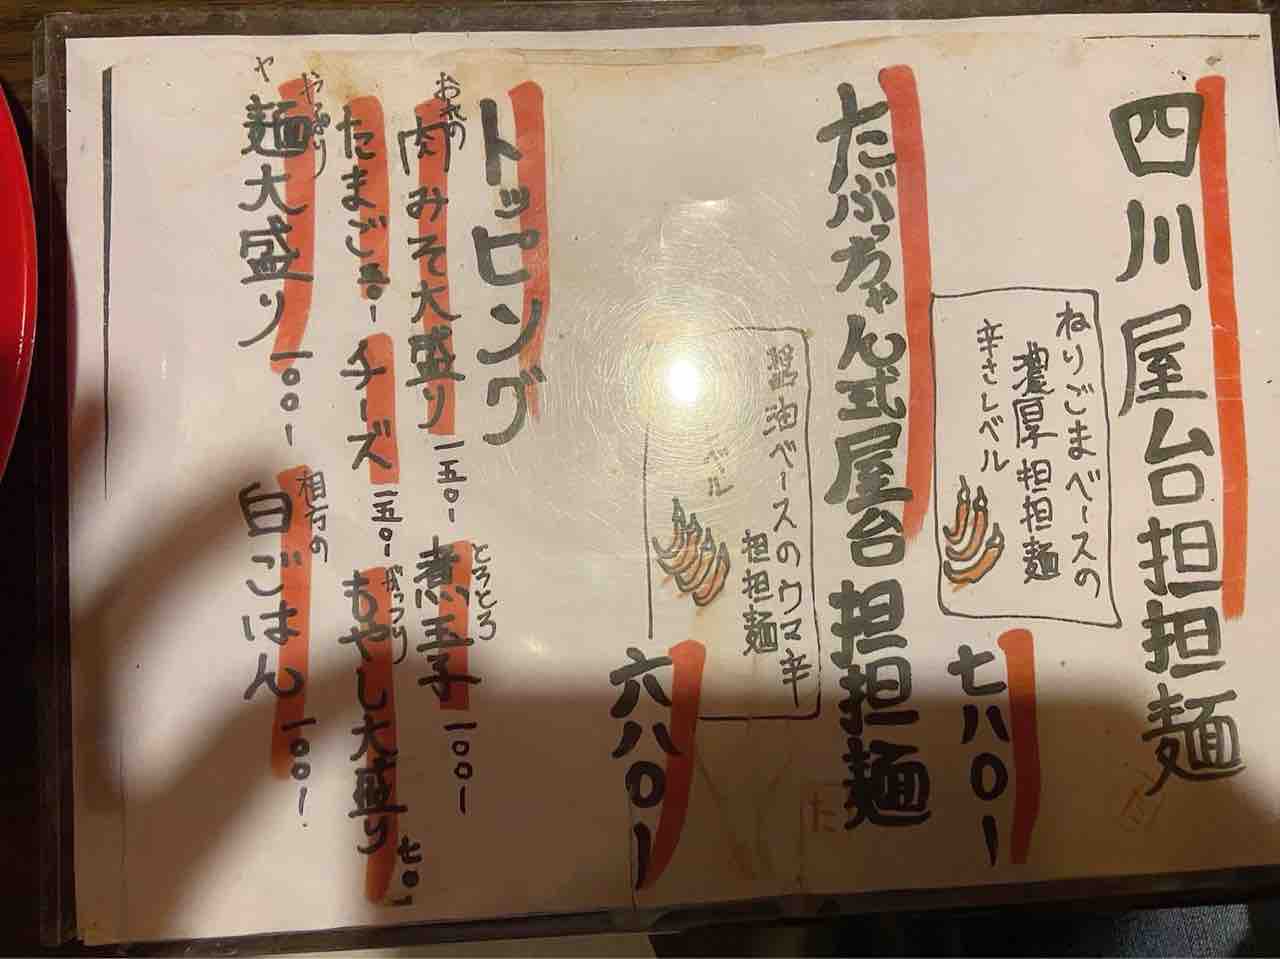 四川屋台担担麺
ねりごまベースの
濃厚担担麺
辛さレベル
七八〇ー
たぶっちゃん式屋台担担麺
醤油ベースのウマ辛
担担麺
ベル
六八〇ー
トッピング
お肉の
肉みそ大盛り 一五〇ー
とろとろ
煮玉子 一〇〇ー
たまご 五〇ー
チーズ 一五〇ー
がっつり
もやし大盛り 七〇ー
やっぱり
麺大盛り 一〇〇ー
相方の
白ごはん 一〇〇ー